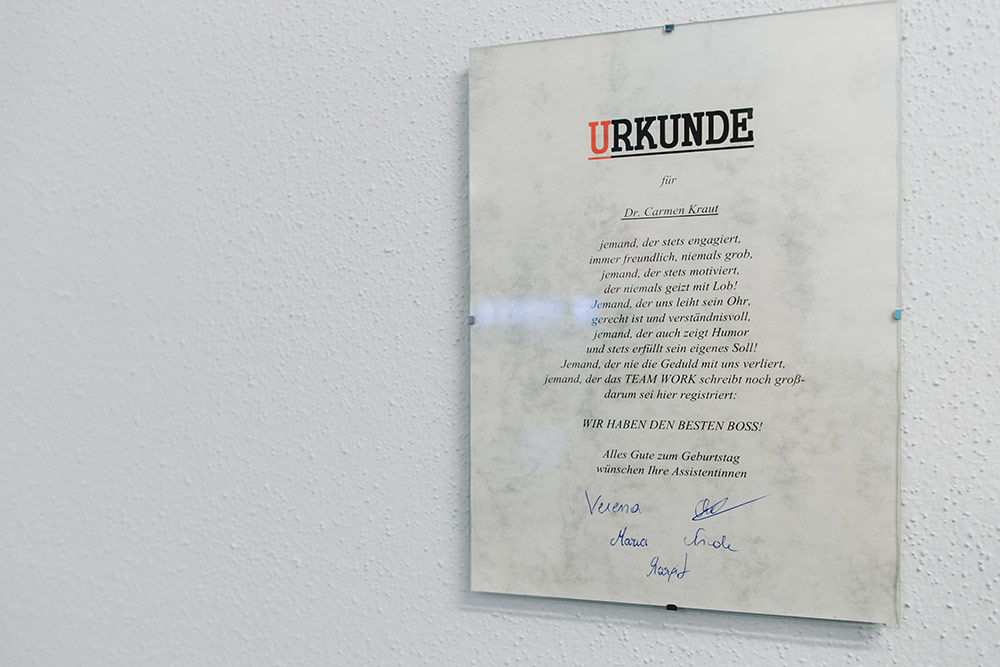 URKUNDE
für
Dr. Carmen Kraut
jemand, der stets engagiert,
immer freundlich, niemals grob,
jemand, der stets motiviert,
der niemals geizt mit Lob!
Jemand, der uns leiht sein Ohr,
gerecht ist und verständnisvoll,
jemand, der auch zeigt Humor
und stets erfüllt sein eigenes Soll!
Jemand, der nie die Geduld mit uns verliert,
jemand, der das TEAM WORK schreibt noch groß-
darum sei hier registriert:
WIR HABEN DEN BESTEN BOSS!
Alles Gute zum Geburtstag
wünschen Ihre Assistentinnen
Verena
Maria